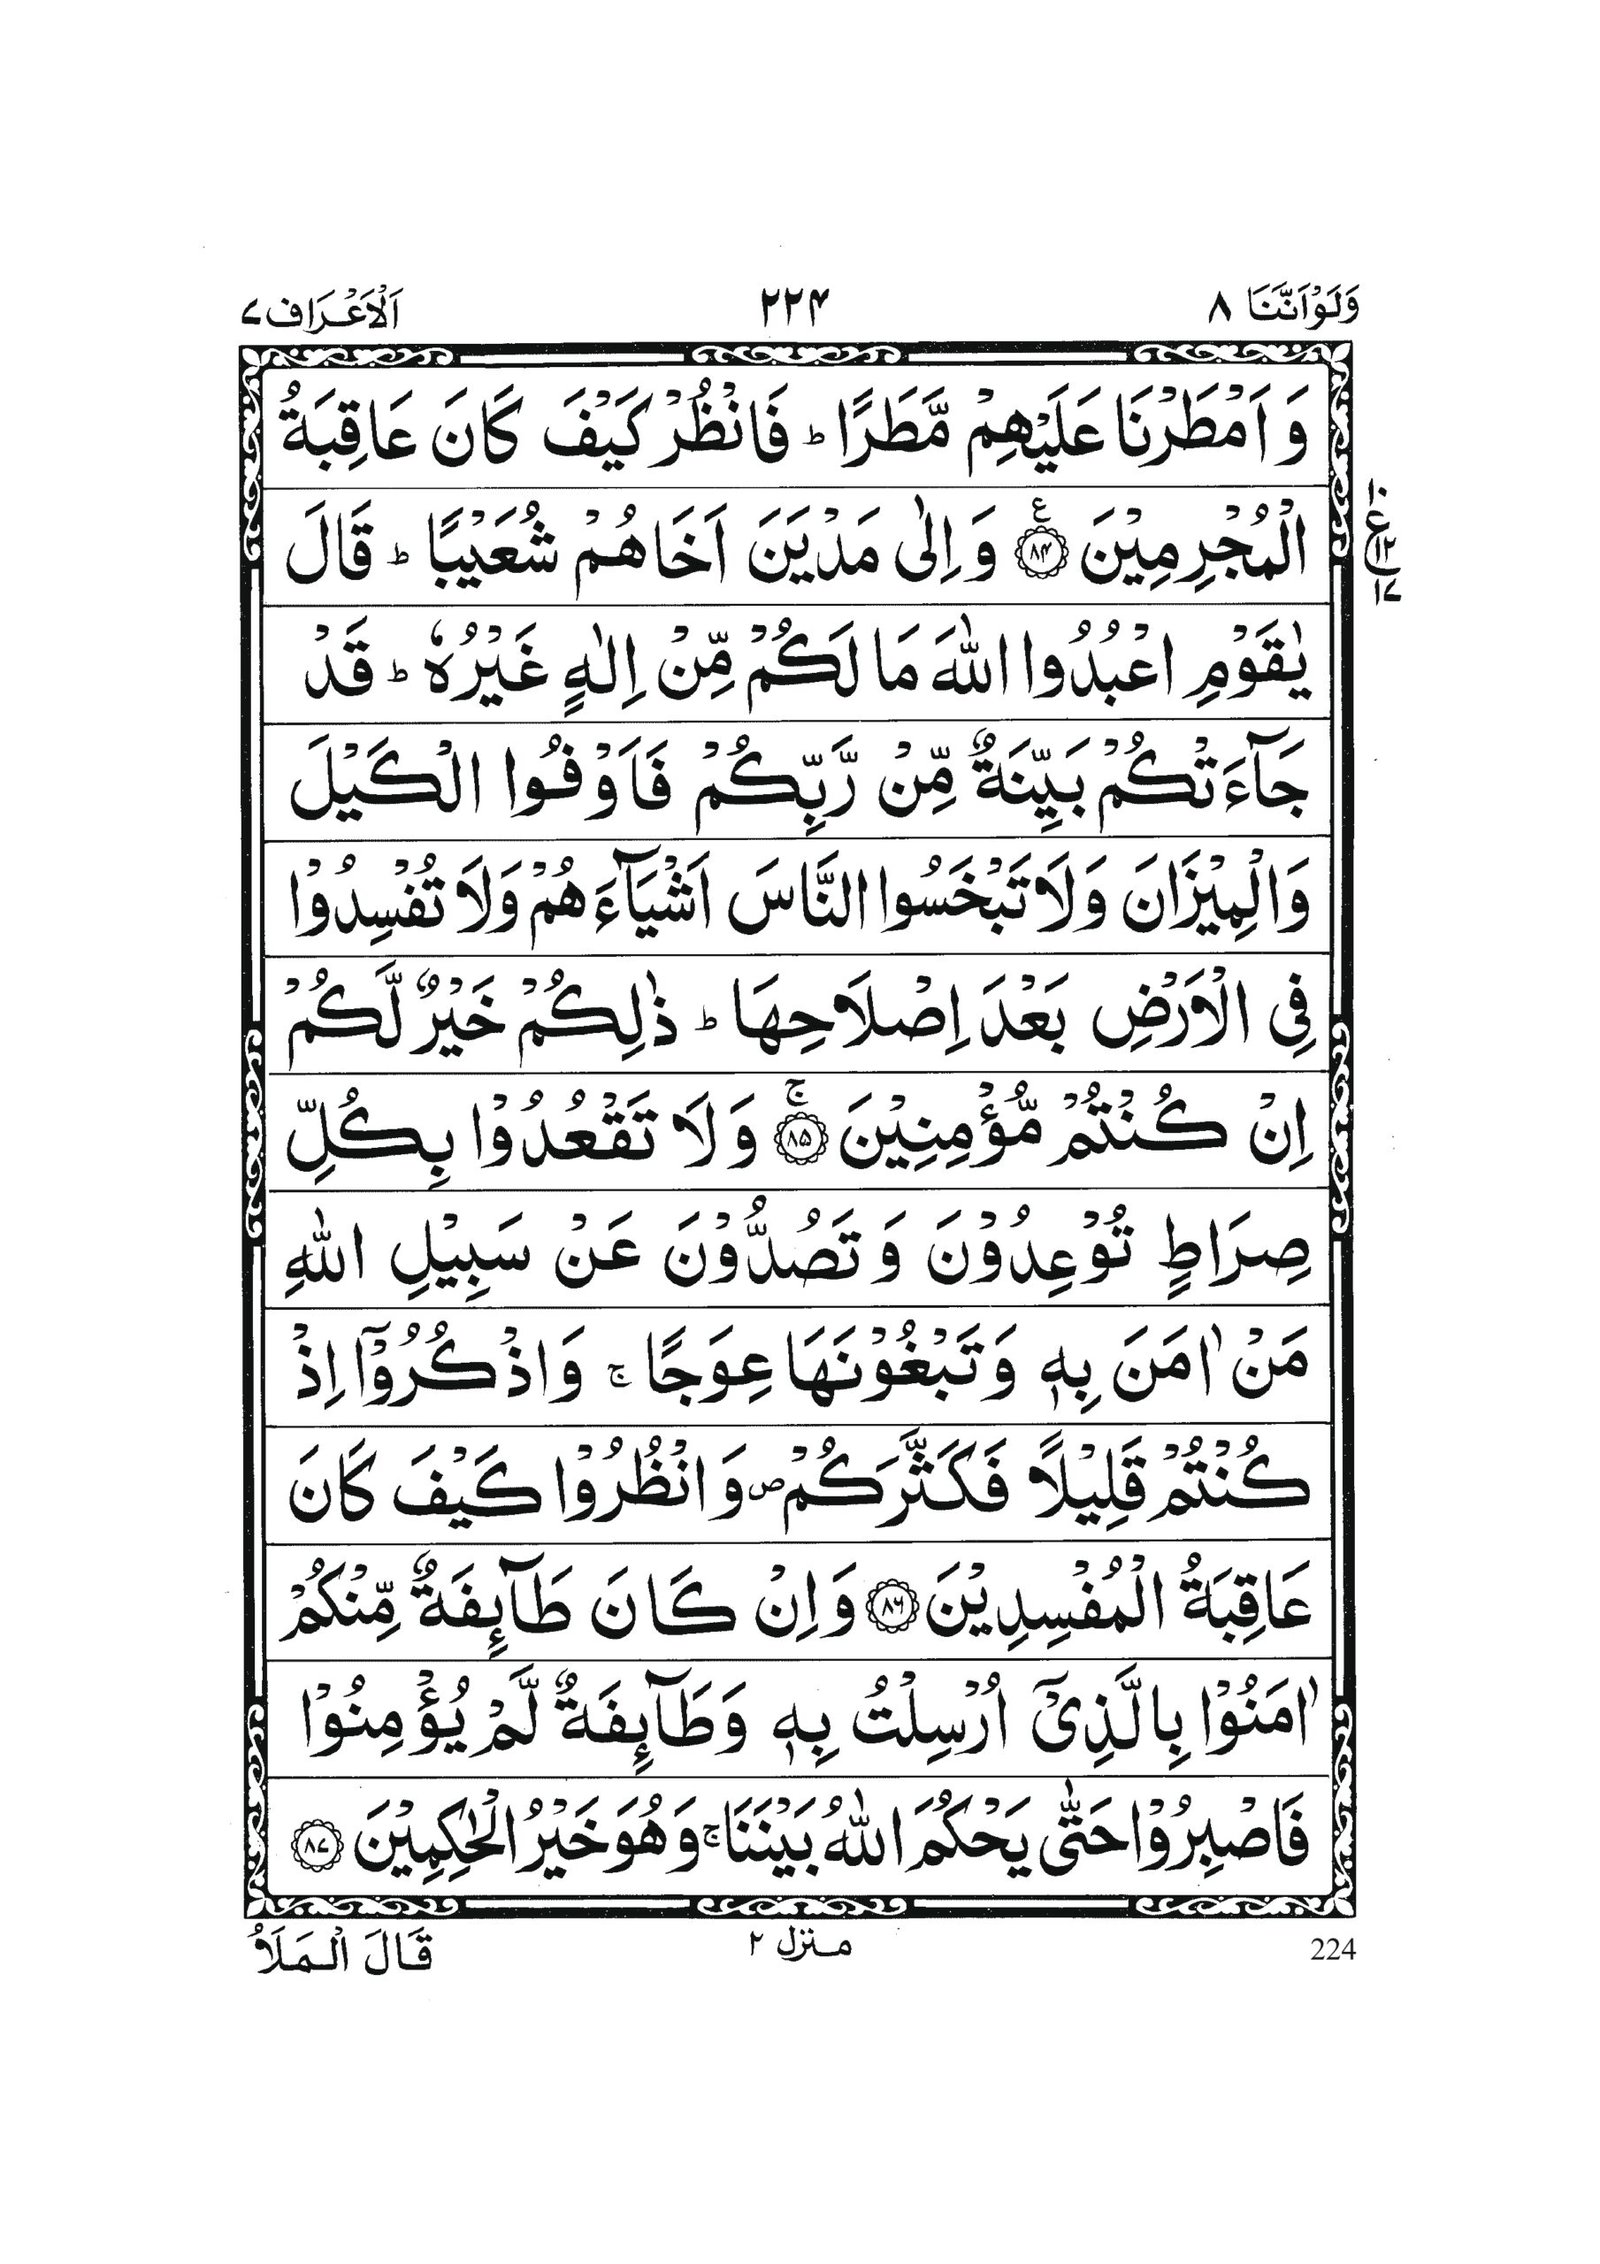 وَلَوْ اَنَّنَا ٨
٢٢٤
اَلْاَعْرَاف ٧
وَ اَمْطَرْنَا عَلَيْهِمْ مَّطَرًا ؕ فَانْظُرْ كَيْفَ كَانَ عَاقِبَةُ
الْمُجْرِمِيْنَ ﴿٨٤﴾ ع وَ اِلٰى مَدْيَنَ اَخَاهُمْ شُعَيْبًا ؕ قَالَ
يٰقَوْمِ اعْبُدُوا اللّٰهَ مَا لَكُمْ مِّنْ اِلٰهٍ غَيْرُهٗ ؕ قَدْ
جَآءَتْكُمْ بَيِّنَةٌ مِّنْ رَّبِّكُمْ فَاَوْفُوا الْكَيْلَ
وَالْمِيْزَانَ وَلَا تَبْخَسُوا النَّاسَ اَشْيَآءَهُمْ وَلَا تُفْسِدُوْا
فِى الْاَرْضِ بَعْدَ اِصْلَاحِهَا ؕ ذٰلِكُمْ خَيْرٌ لَّكُمْ
اِنْ كُنْتُمْ مُّؤْمِنِيْنَ ﴿٨٥﴾ ۚ وَلَا تَقْعُدُوْا بِكُلِّ
صِرَاطٍ تُوْعِدُوْنَ وَ تَصُدُّوْنَ عَنْ سَبِيْلِ اللّٰهِ
مَنْ اٰمَنَ بِهٖ وَ تَبْغُوْنَهَا عِوَجًا ۚ وَاذْكُرُوْۤا اِذْ
كُنْتُمْ قَلِيْلًا فَكَثَّرَكُمْ ۪ وَ انْظُرُوْا كَيْفَ كَانَ
عَاقِبَةُ الْمُفْسِدِيْنَ ﴿٨٦﴾ وَ اِنْ كَانَ طَآئِفَةٌ مِّنْكُمْ
اٰمَنُوْا بِالَّذِىْۤ اُرْسِلْتُ بِهٖ وَطَآئِفَةٌ لَّمْ يُؤْمِنُوْا
فَاصْبِرُوْا حَتّٰى يَحْكُمَ اللّٰهُ بَيْنَنَا ۚ وَهُوَ خَيْرُ الْحٰكِمِيْنَ ﴿٨٧﴾
١٠
ع ١٢
١٧
224
منزل ٢
قَالَ الْمَلَاُ